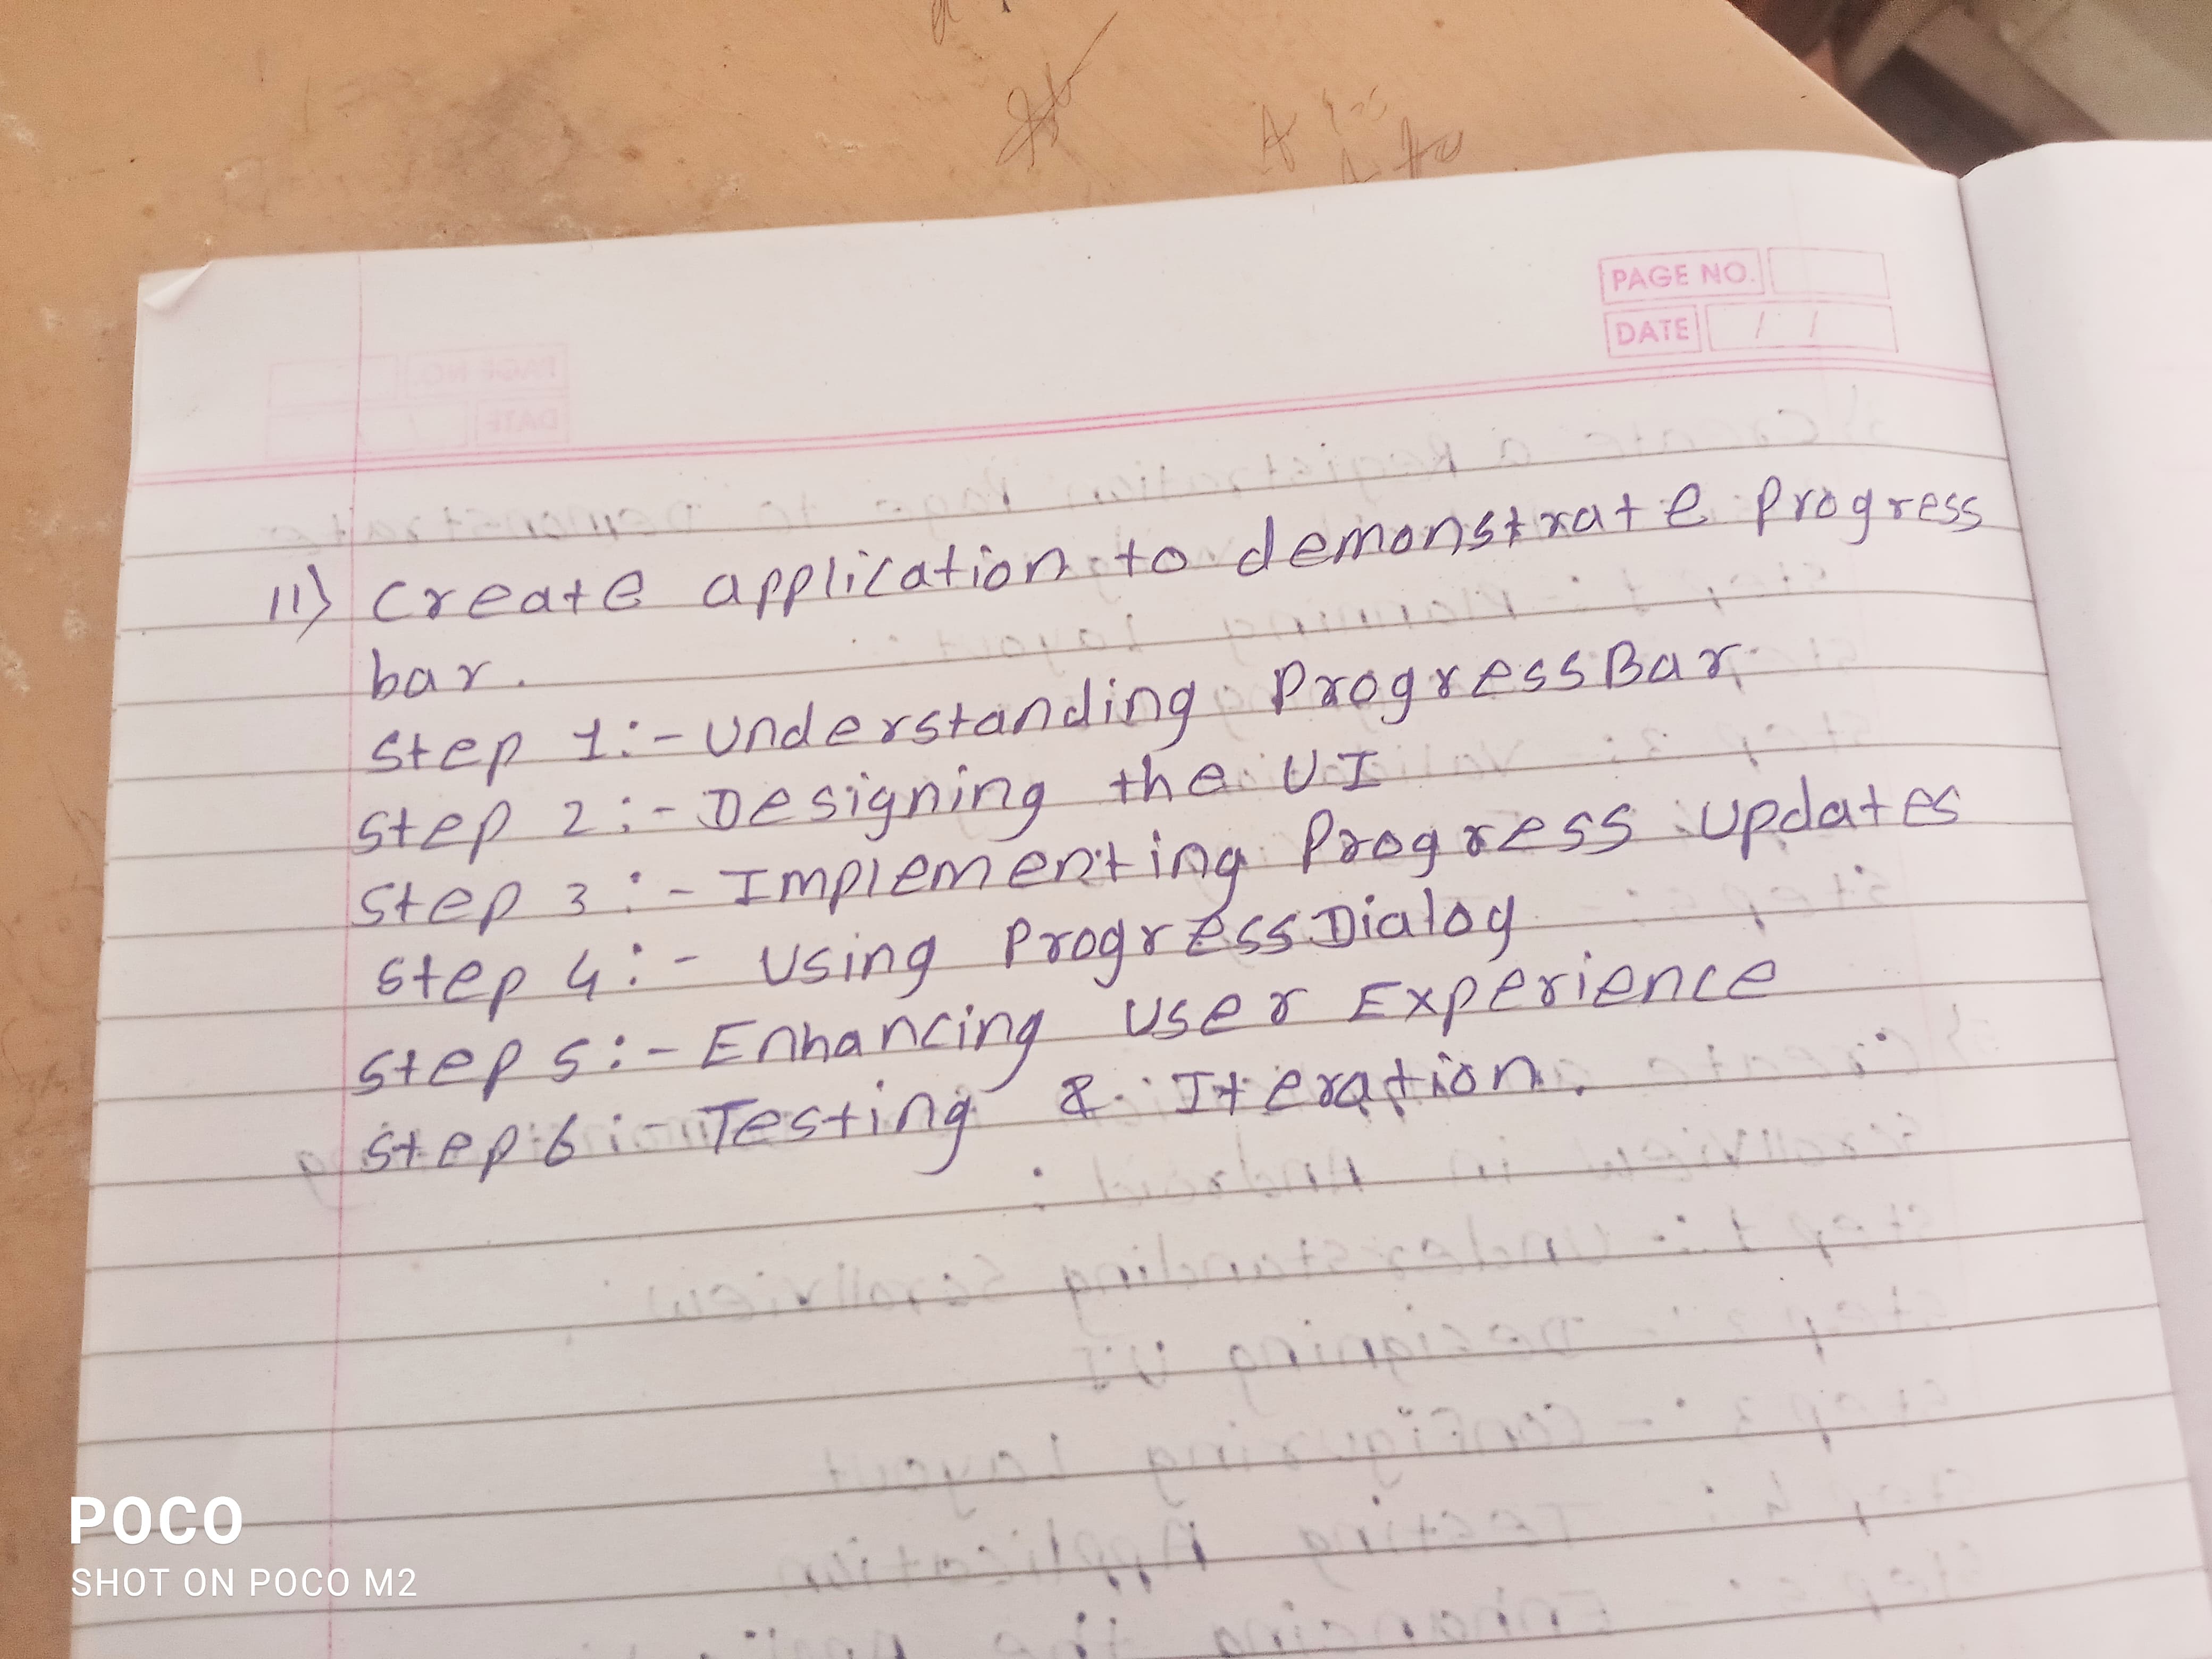 PAGE NO.
DATE / /
11) Create application to demonstrate Progress
bar.
Step 1:- Understanding ProgressBar
Step 2:- Designing the UI
Step 3:- Implementing Progress Updates
Step 4:- Using ProgressDialog
Step 5:- Enhancing User Experience
Step 6:- Testing & Iteration.
POCO
SHOT ON POCO M2